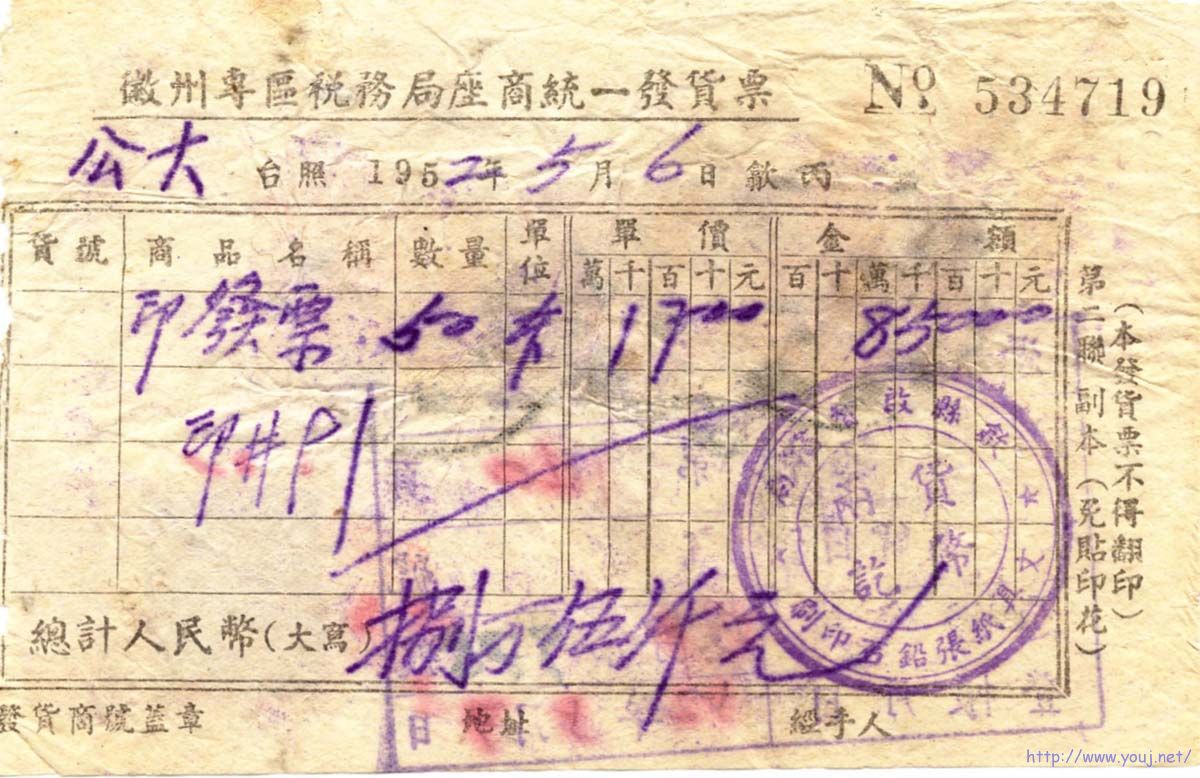 徽州專區稅務局座商統一發貨票 No. 534719
公大 台照 1952年5月6日 歙丙
貨號 商品名稱 數量 單位 單價 金額
萬千百十元 百十萬千百十元
印發票 50 本 1700 85000
印
總計人民幣(大寫) 捌万伍仟元
發貨商號蓋章 地址 經手人
第二聯 副本(免貼印花)
(本發貨票不得翻印)
歙縣
文具紙張鉛石印刷
貨幣
訖
http://www.youj.net/